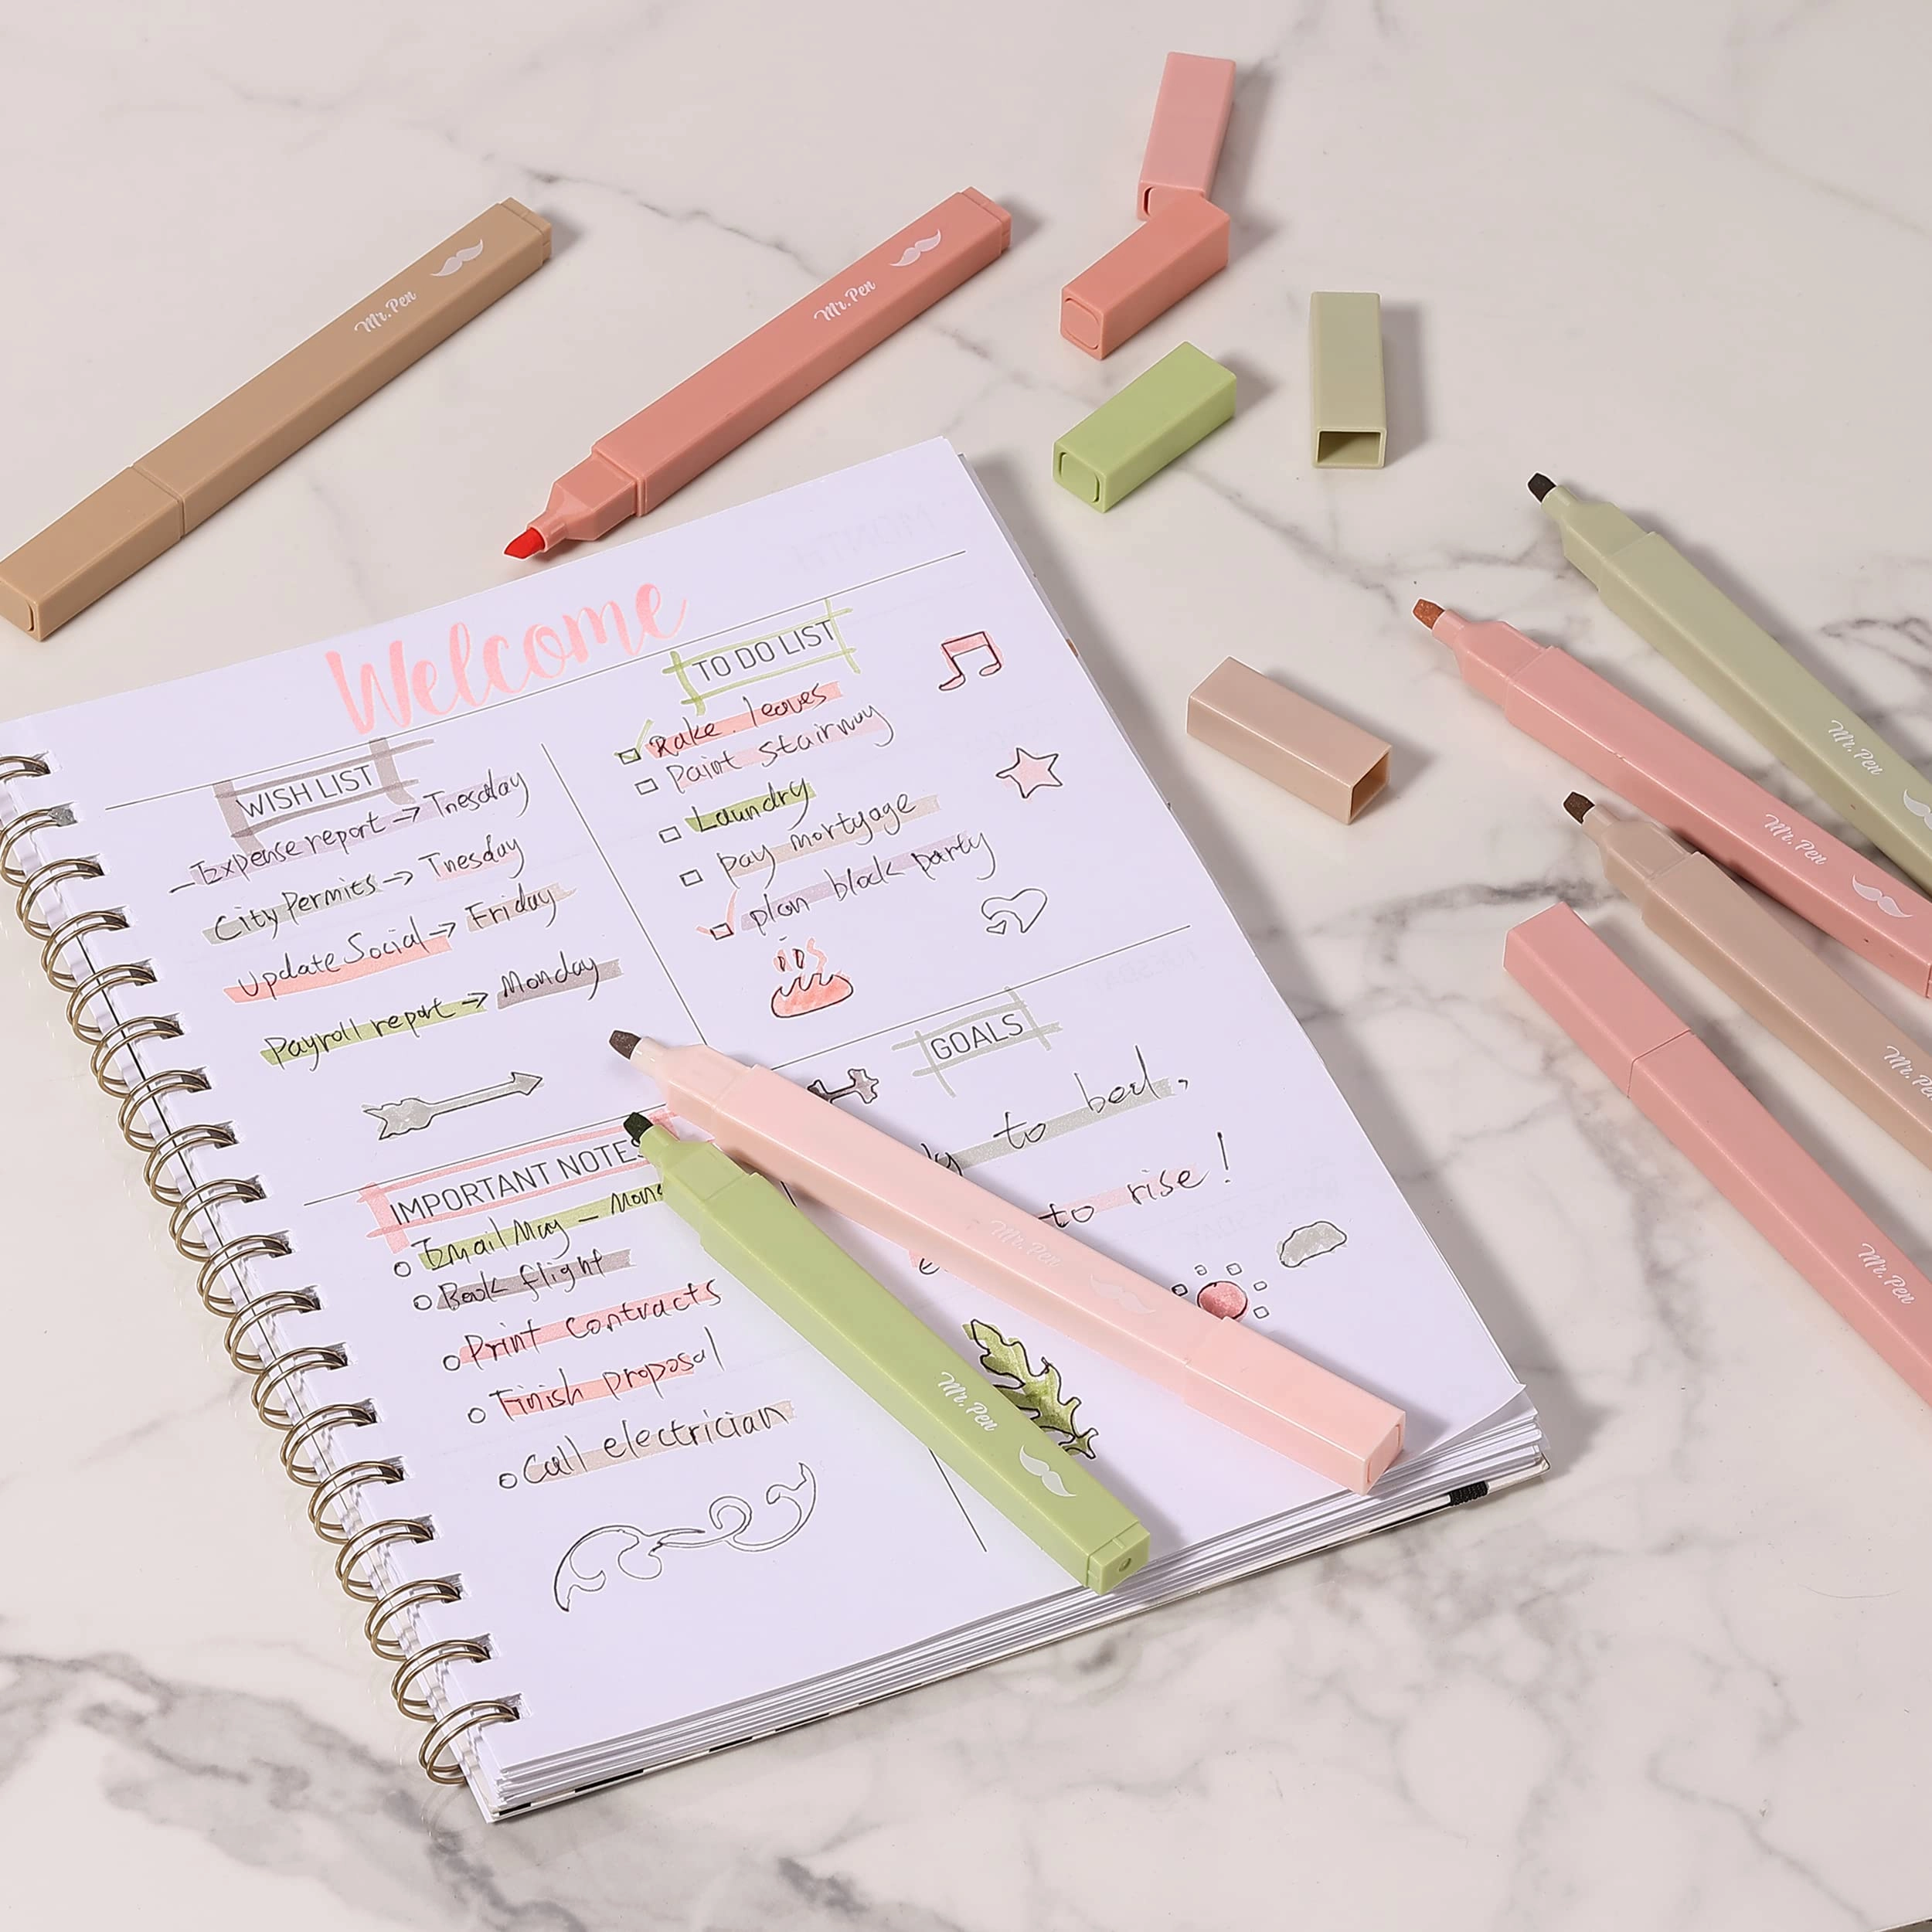 Mr. Pen
Mr. Pen
Welcome
WISH LIST
Expense report → Tuesday
City Permits → Tuesday
Update Social → Friday
Payroll report → Monday
TO DO LIST
Rake leaves
Paint stairway
Laundry
pay mortgage
plan block party
IMPORTANT NOTES
Email May –
Book flight
Print Contracts
Finish proposal
Call electrician
GOALS
to bed,
to rise!
Mr. Pen
Mr. Pen
Mr. Pen
Mr. Pen
Mr. Pen
Mr. Pen